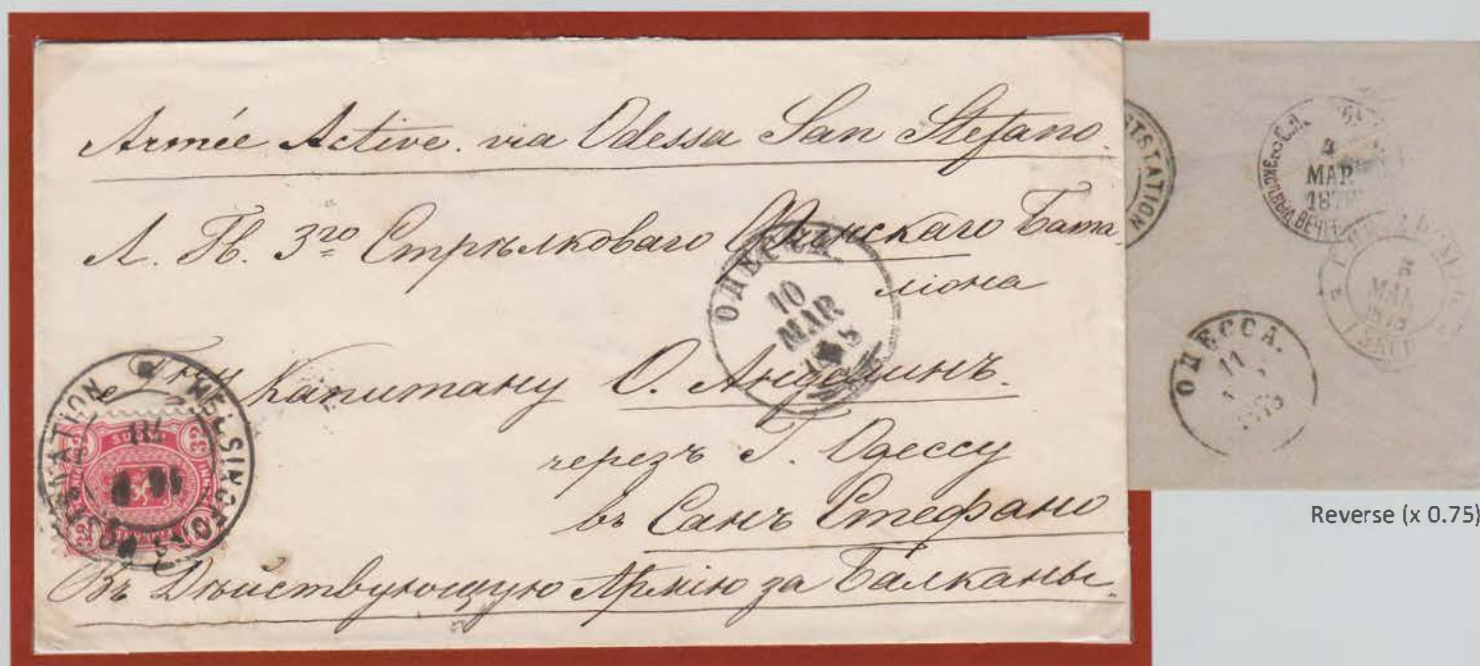 Armée Active. via Odessa San Stefano.
Л. Гв. 3го Стрѣлковаго Финскаго Бата-
ліона
Г-ну Капитану О.
черезъ Г. Одессу
въ Санъ Стефано
Въ Дѣйствующую Армію за Балканы.
ОДЕССА.
10
MAR
HELSINGFORS
SUOMI
32
ОДЕССА.
11
4
МАР
187
Reverse (x 0.75)